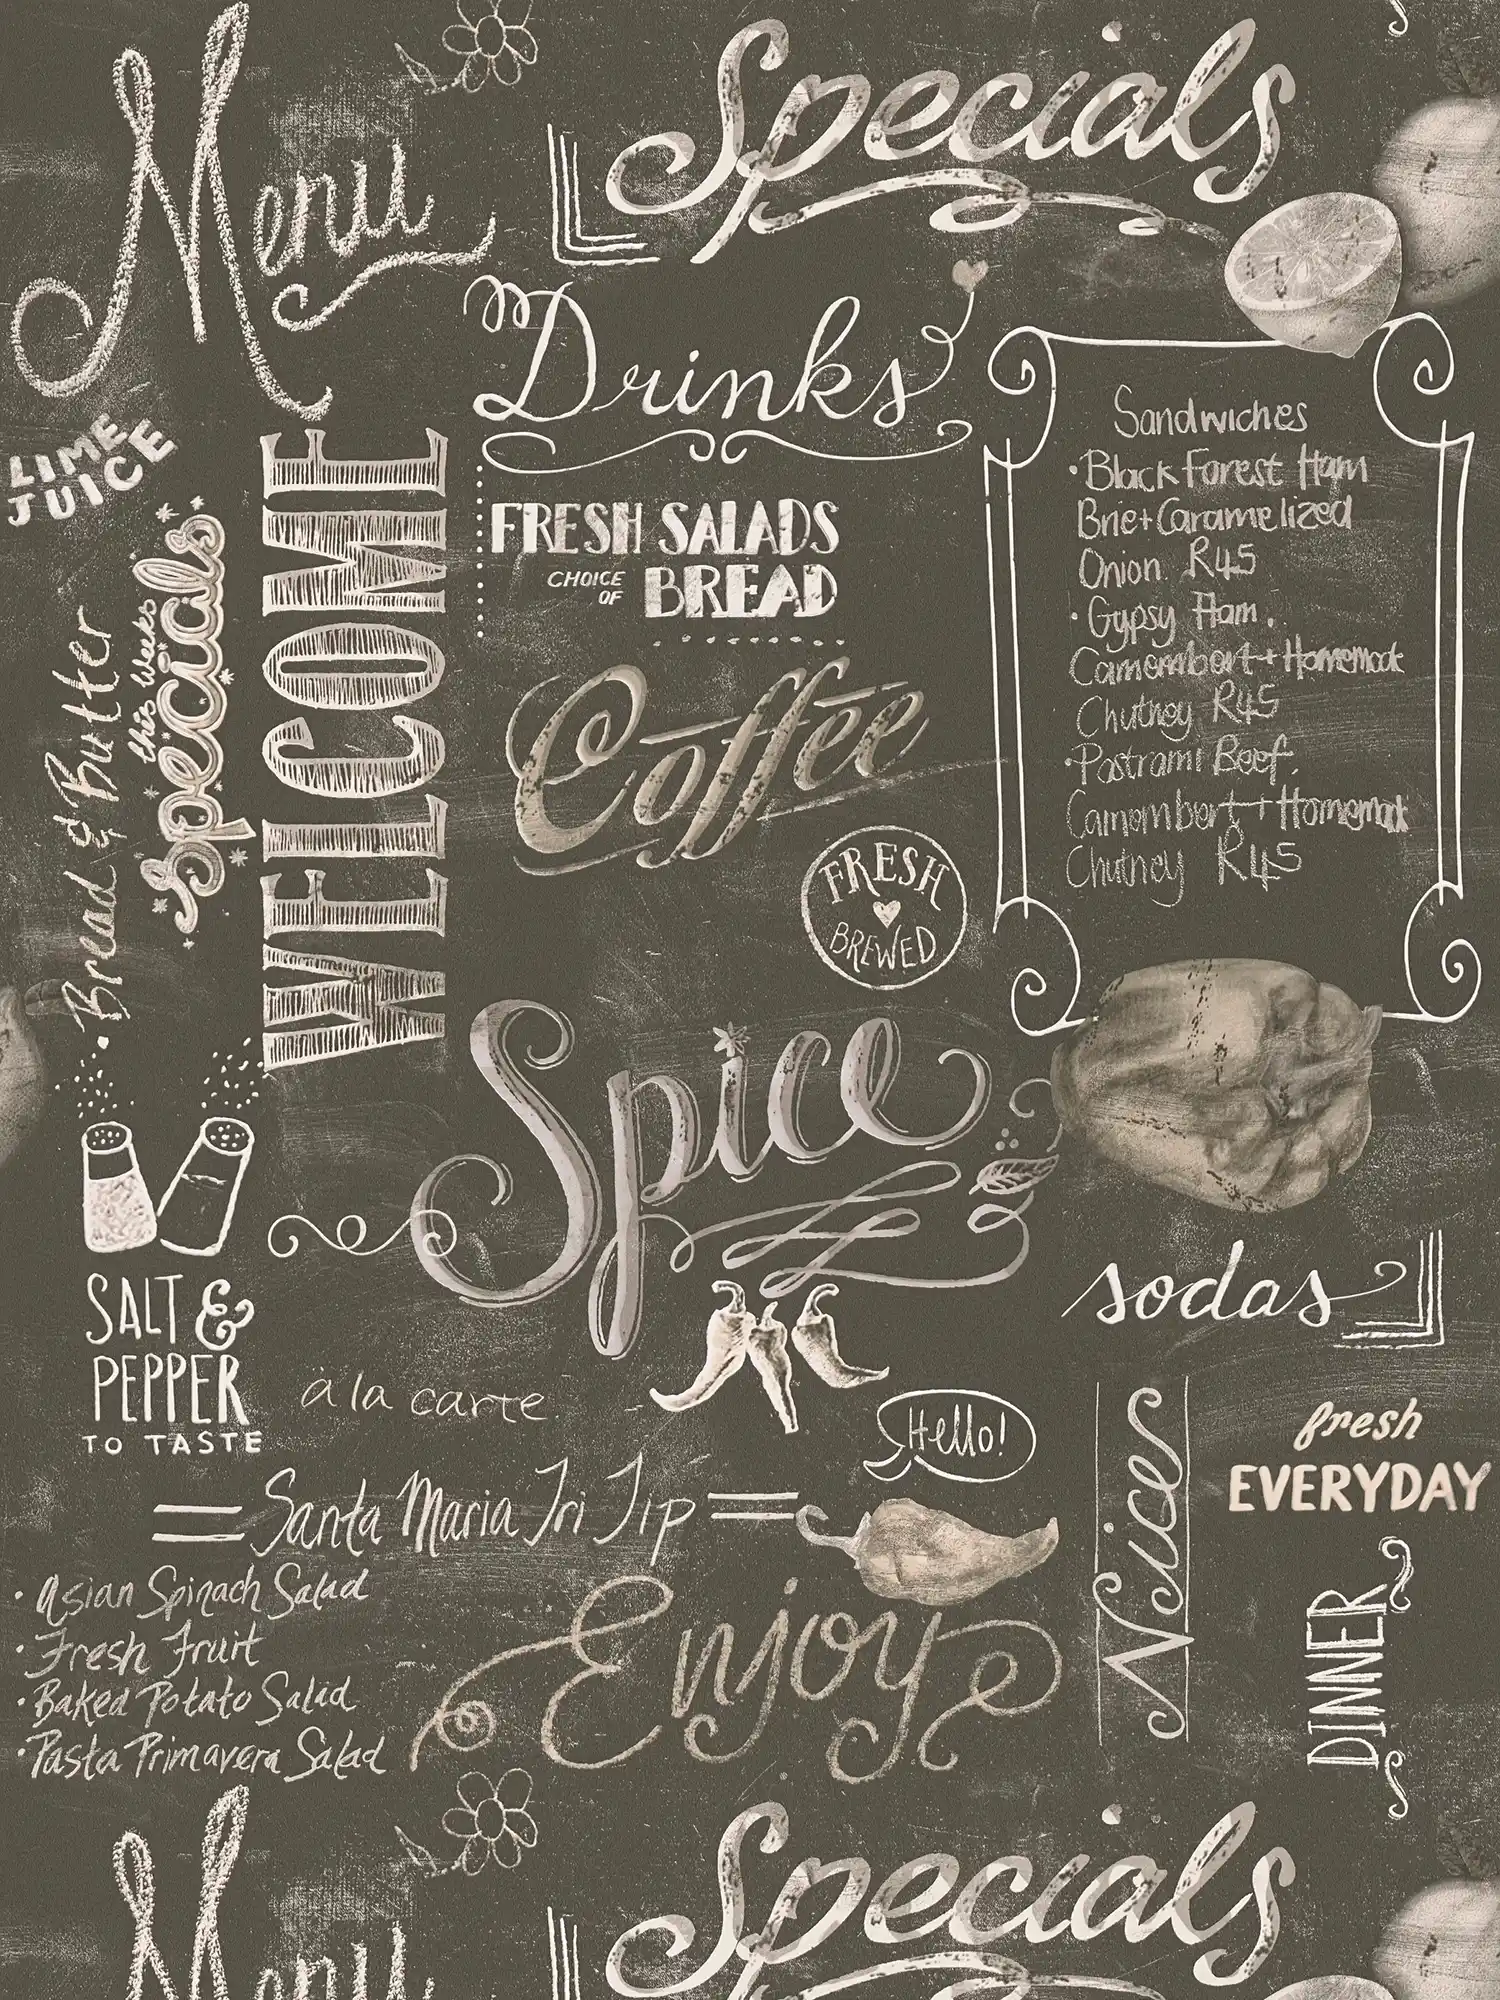 Menu
Specials
Drinks
LIME
JUICE
Bread & Butter
this weeks
specials
WELCOME
FRESH SALADS
CHOICE
OF
BREAD
Coffee
FRESH
BREWED
Sandwiches
• Black Forest Ham
Brie + Caramelized
Onion. R45
• Gypsy Ham.
Camembert + Homemade
Chutney R45
• Pastrami Beef.
Camembert + Homemade
Chutney R45
Spice
SALT &
PEPPER
TO TASTE
a la carte
sodas
Hello!
Santa Maria Tri Tip
• Asian Spinach Salad
• Fresh Fruit
• Baked Potato Salad
• Pasta Primavera Salad
Enjoy
Nice
fresh
EVERYDAY
DINNER
Menu
Specials